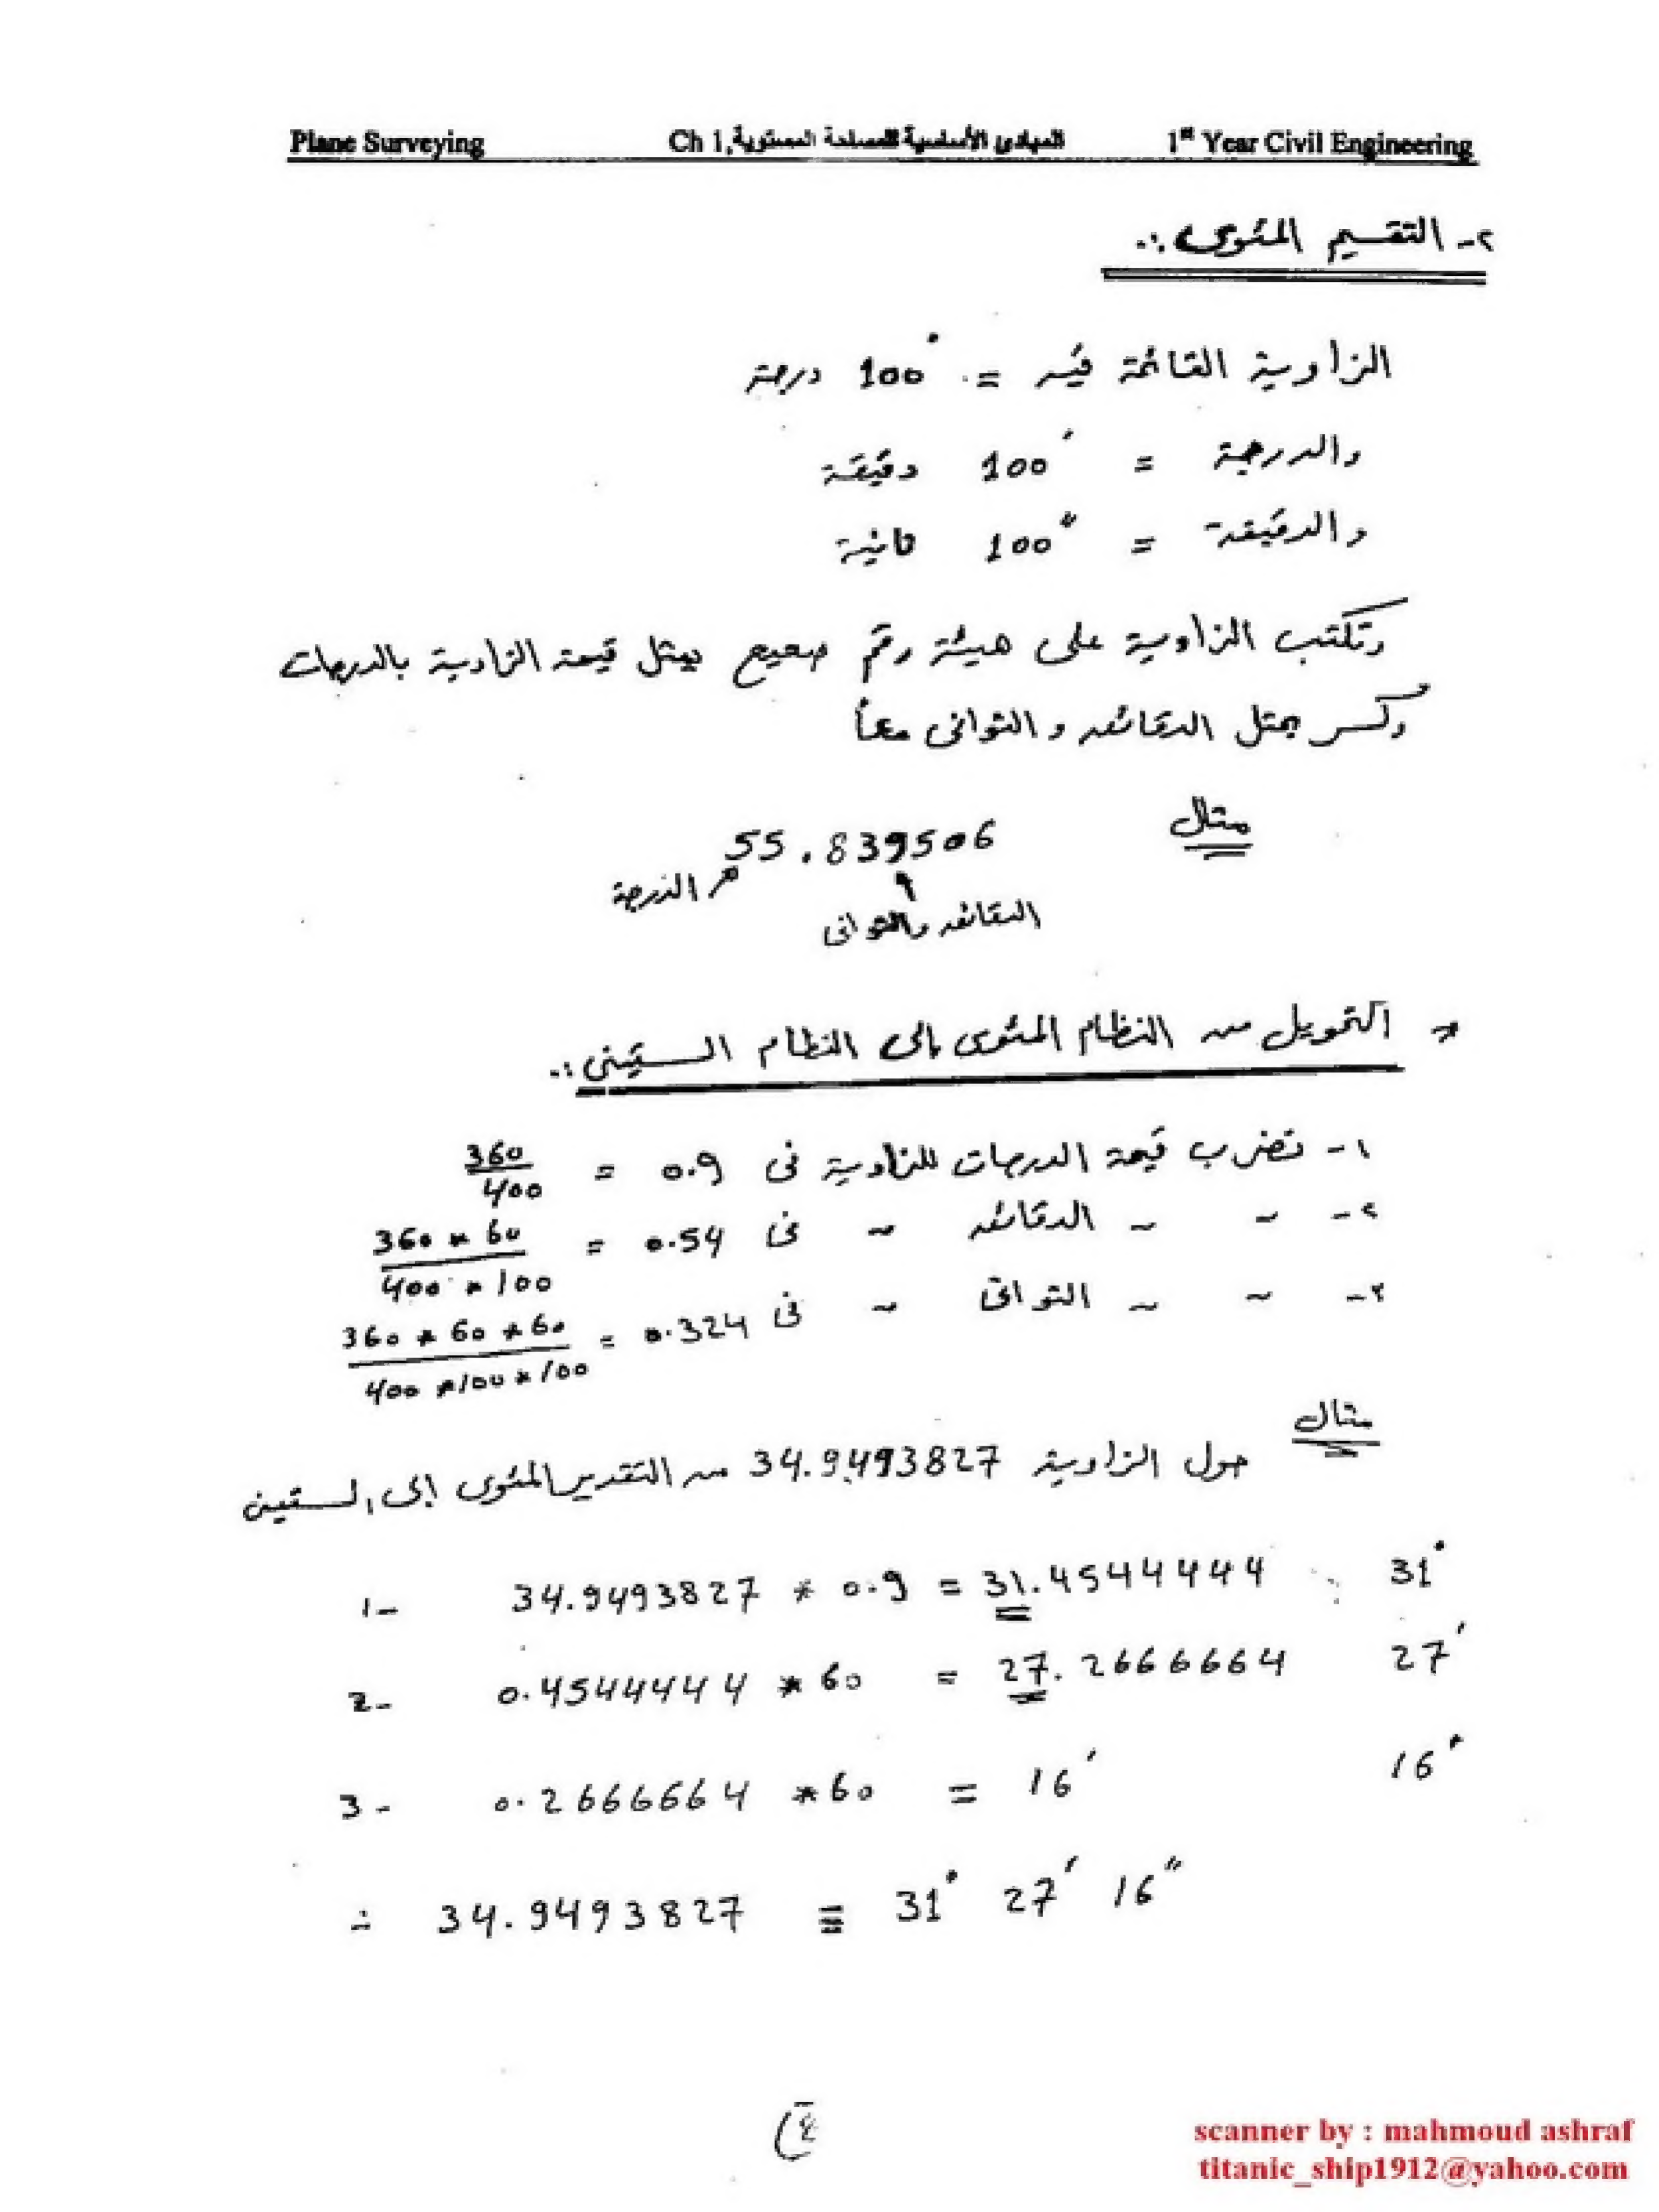 Plane Surveying Ch 1, المبادئ الأساسية للمساحة المستوية 1st Year Civil Engineering
٢- التقسيم المئوى :.
الزاوية القائمة فيه = 100° درجة
والدرجة = 100' دقيقة
والدقيقة = 100" ثانية
وتكتب الزاوية على هيئة رقم صحيح يمثل قيمة الزاوية بالدرجات
وكسر يمثل الدقائق والثوانى معاً
مثال
55.839506
الدرجة
الدقائق والثوانى
* التحويل من النظام المئوى إلى النظام الستينى :.
١- تضرب قيمة الدرجات للزاوية فى 0.9 = 360/400
٢- ~ ~ الدقائق ~ فى 0.54 = 360 * 60 / 400 * 100
٣- ~ ~ الثوانى ~ فى 0.324 = 360 * 60 * 60 / 400 * 100 * 100
مثال
حول الزاوية 34.9493827 من التقدير المئوى إلى الستينى
1- 34.9493827 * 0.9 = 31.4544444 ∴ 31°
2- 0.4544444 * 60 = 27.2666664 27'
3- 0.2666664 * 60 = 16' 16"
∴ 34.9493827 ≡ 31° 27' 16"
scanner by : mahmoud ashraf
titanic_ship1912@yahoo.com